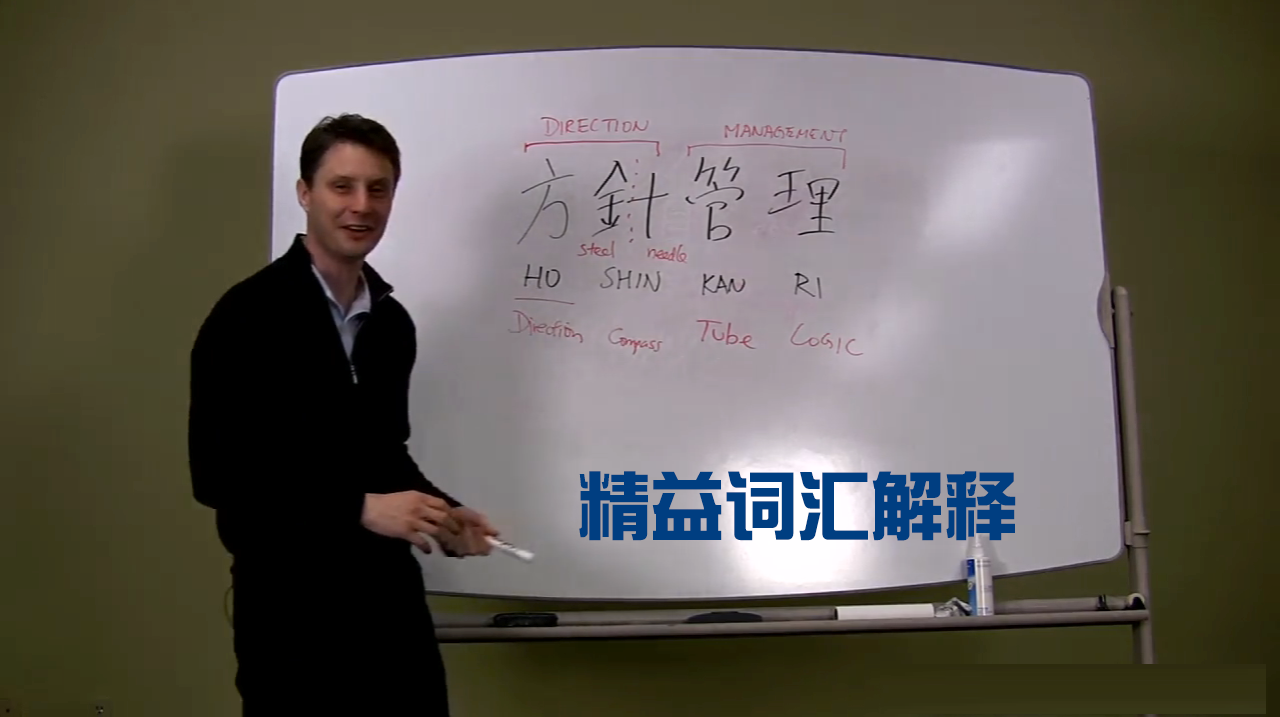 DIRECTION MANAGEMENT
方針管理
steel needle
HO SHIN KAN RI
Direction Compass Tube LOGIC
精益词汇解释